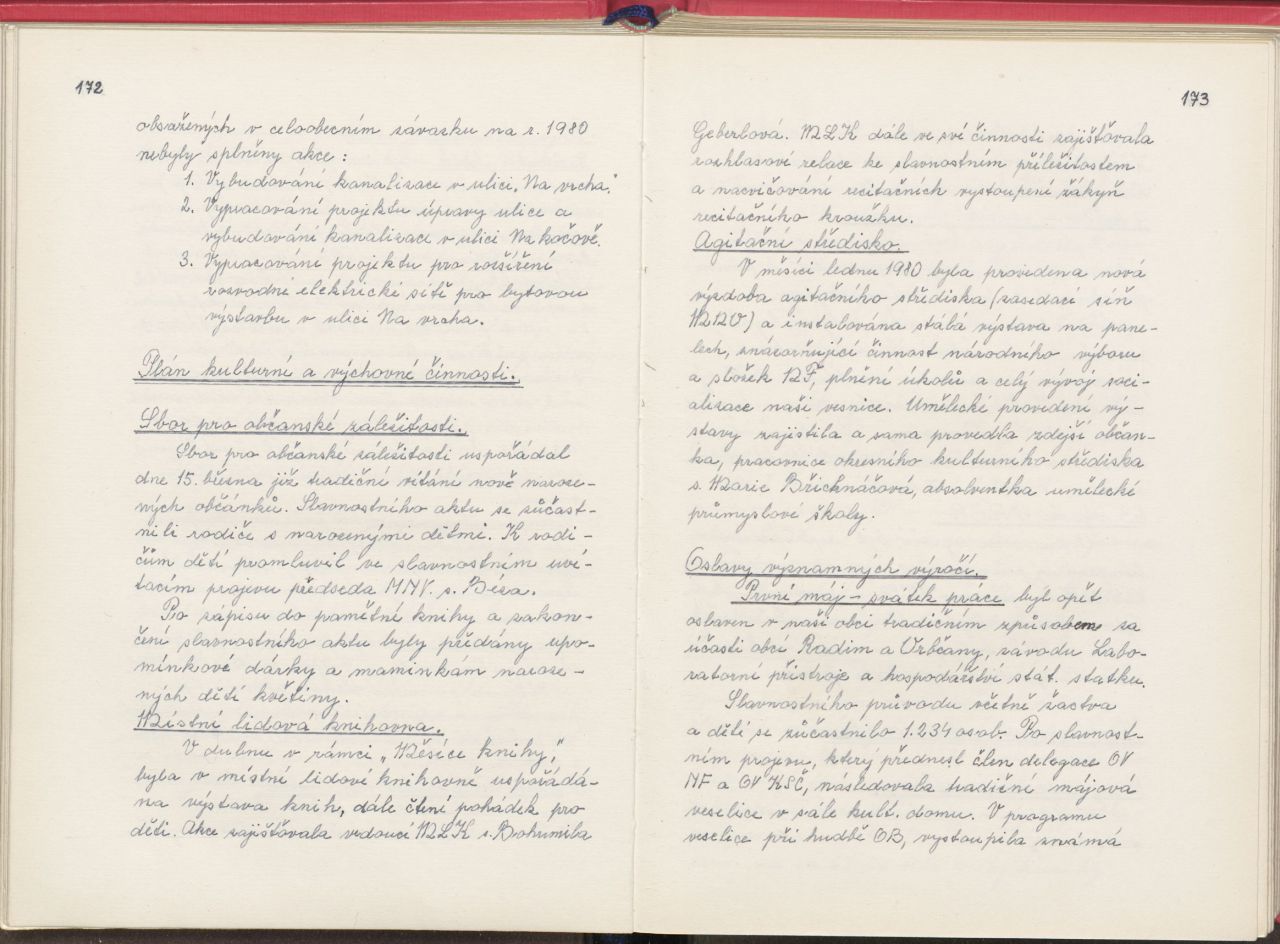 172
obsažených v celoobecním závazku na r. 1980
nebyly splněny akce:
1. Vybudování kanalizace v ulici „Na vrcha."
2. Vypracování projektu úpravy ulice a
vybudování kanalizace v ulici Na kočově.
3. Vypracování projektu pro rozšíření
rozvodne elektrické sítě pro bytovou
výstavbu v ulici Na vrcha.
Plán kulturní a výchovné činnosti.
Sbor pro občanské záležitosti.
Sbor pro občanské záležitosti uspořádal
dne 15. března již tradiční vítání nově naroze-
ných občánků. Slavnostního aktu se zúčast-
nili rodiče s narozenými dětmi. K rodi-
čům dětí promluvil ve slavnostním uví-
tacím projevu předseda MNV. s. Béza.
Po zápisu do pamětní knihy a zakon-
čení slavnostního aktu byly předány upo-
mínkové dárky a maminkám naroze-
ných dětí květiny.
Místní lidová knihovna.
V dubnu v rámci „Měsíce knihy,"
byla v místní lidové knihovně uspořádá-
na výstava knih, dále čtení pohádek pro
děti. Akce zajišťovala vedoucí MLK s. Bohumila
173
Geberlová. MLK dále ve své činnosti zajišťovala
rozhlasové relace ke slavnostním příležitostem
a nacvičování recitačních vystoupení žákyň
recitačního kroužku.
Agitační středisko.
V měsíci lednu 1980 byla provedena nová
výzdoba agitačního střediska (zasedací síň
MNV) a instalována stálá výstava na pane-
lech, znázorňující činnost národního výboru
a složek NF, plnění úkolů a celý vývoj soci-
alizace naší vesnice. Umělecké provedení vý-
stavy zajistila a sama provedla zdejší občan-
ka, pracovnice okresního kulturního střediska
s. Marie Břichnáčová, absolventka umělecké
průmyslové školy.
Oslavy významných výročí.
První máj - svátek práce byl opět
oslaven v naší obci tradičním způsobem za
účasti obcí Radim a Vrbčany, závodu Labo-
ratorní přístroje a hospodářství stát. statku.
Slavnostního průvodu včetně žactva
a dětí se zúčastnilo 1.234 osob. Po slavnost-
ním projevu, který přednesl člen delegace OV
NF a OV KSČ, následovala tradiční májová
veselice v sále kult. domu. V programu
veselice při hudbě OB, vystoupila známá